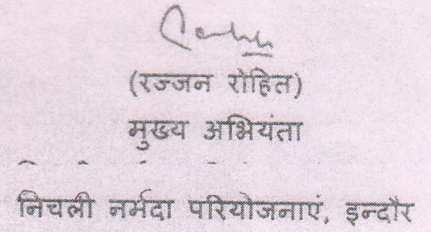 (रज्जन रोहित)
मुख्य अभियंता
निचली नर्मदा परियोजनाएं, इन्दौर